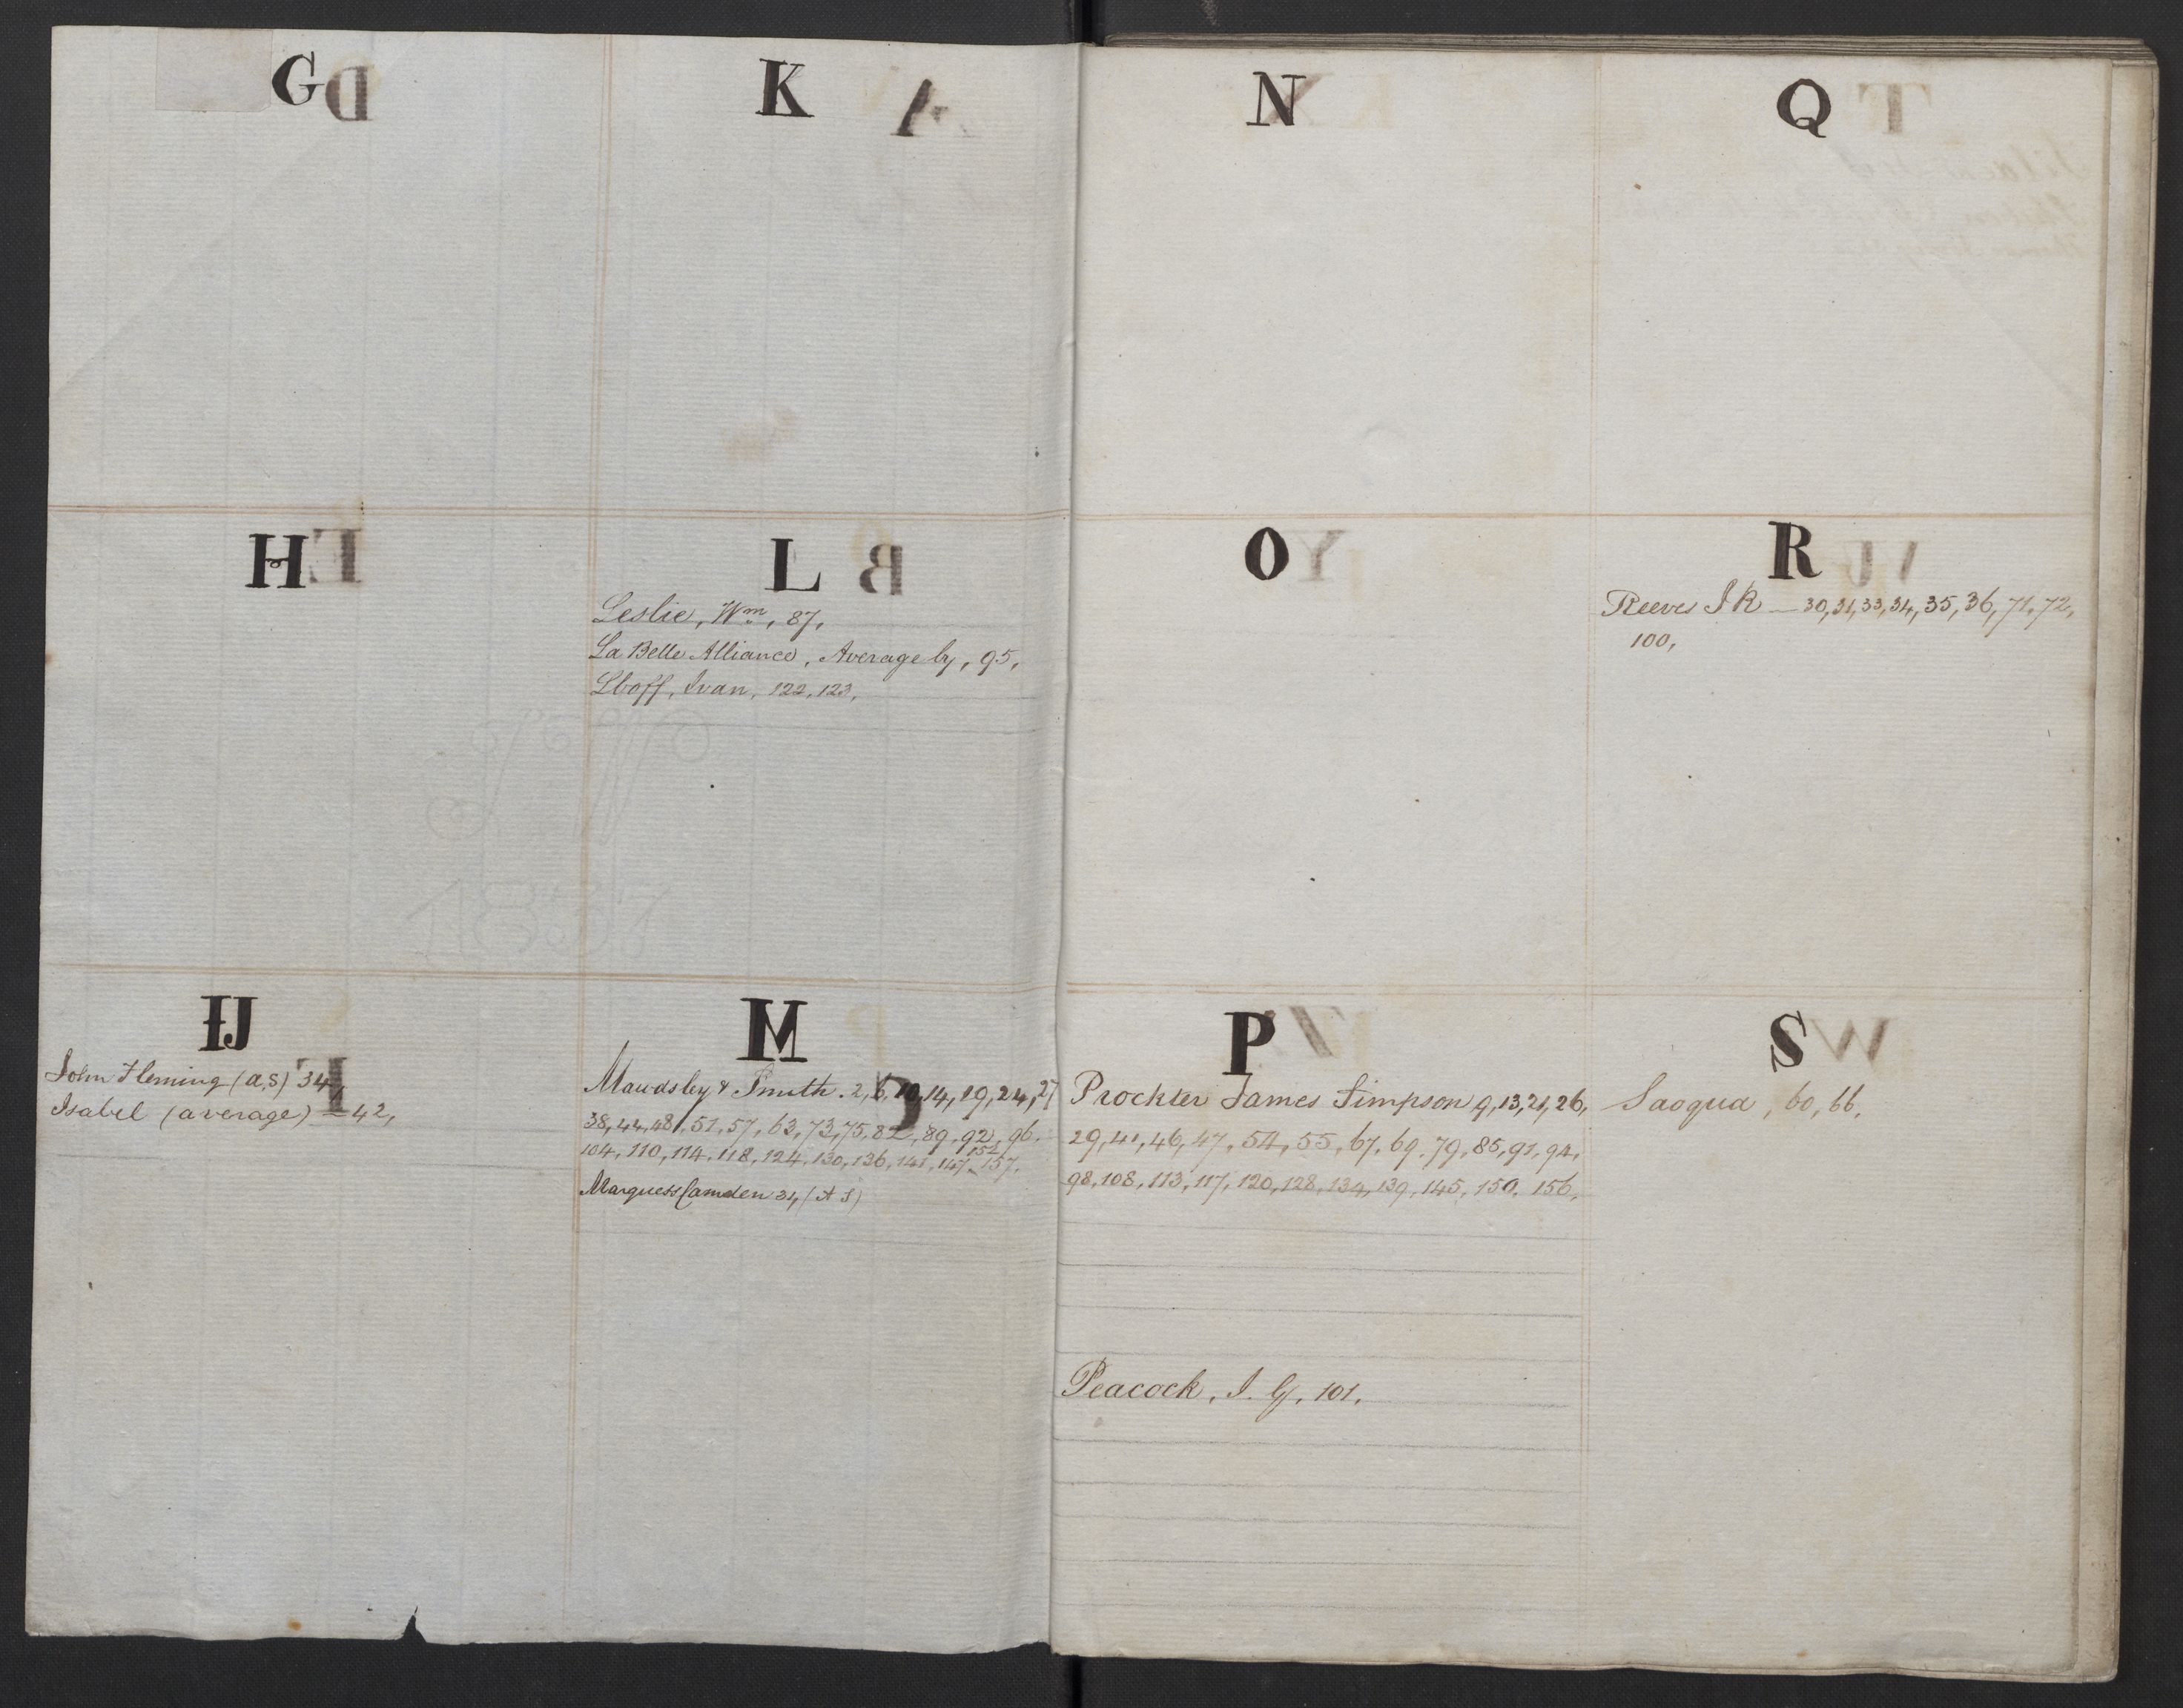 G
H
IJ
John Fleming (a,s) 34,
Isabel (average) — 42,
K
L
Leslie, Wm, 87,
La Belle Alliance, Average by, 95,
Lboff, Ivan, 122, 123,
M
Mawdsley & Smith. 2, 6, 10, 14, 19, 24, 27
38, 44, 48, 51, 57, 63, 73, 75, 82, 89, 92, 96,
152,
104, 110, 114, 118, 124, 130, 136, 141, 147, 157,
Marquess Camden 34 (A S)
N
O
P
Prockter James Simpson 9, 13, 21, 26,
29, 41, 46, 47, 54, 55, 67, 69, 79, 85, 91, 94,
98, 108, 113, 117, 120, 128, 134, 139, 145, 150, 156,
Peacock, J. G, 101,
Q
R
Reeves J R — 30, 31, 33, 34, 35, 36, 71, 72,
100,
S
Saoqua, 60, 66,